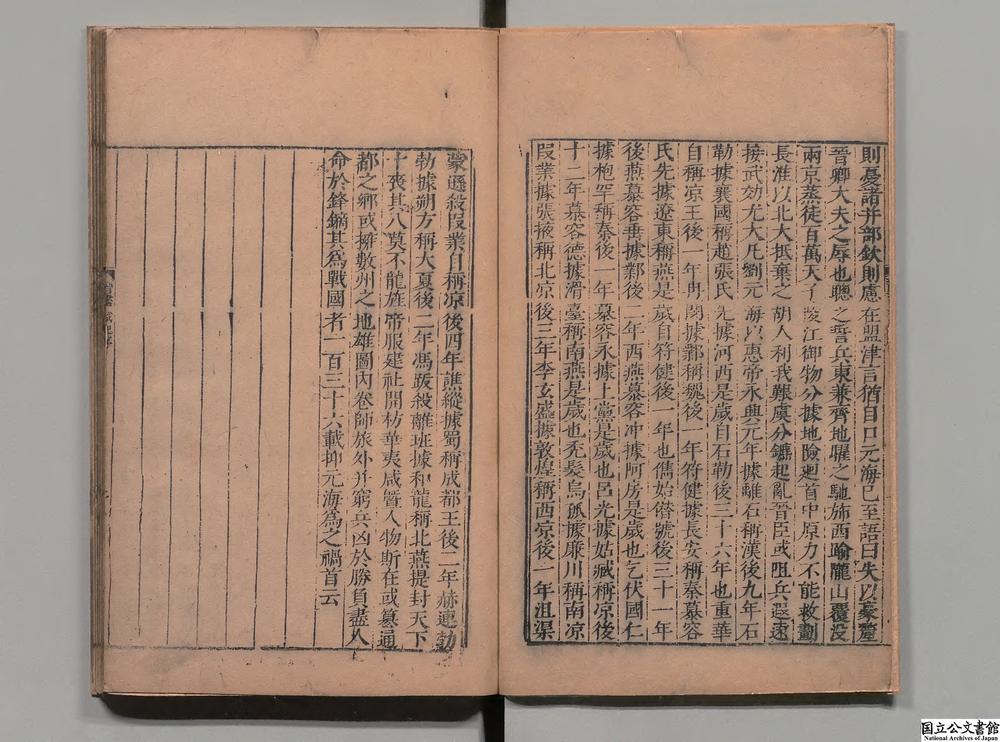 則憂諸并部欽則慮在盟津言猶自口元海已至語曰失以豪釐
晉卿大夫之辱也聰之誓兵東兼齊地曜之馳旆西踰隴山覆没
兩京蒸徒百萬天子陵江御物分據地險廻首中原力不能救劃
長淮以北大抵棄之胡人利我艱虞分鑣起亂晉臣或阻兵遐遠
接武効尤大凡劉元海以惠帝永興元年據離石稱漢後九年石
勒據襄國稱趙張氏先據河西是歲自石勒後三十六年也重華
自稱凉王後一年冉閔據鄴稱魏後一年符健據長安稱秦慕容
氏先據遼東稱燕是歲自符健後一年也儁始僭號後三十一年
後燕慕容垂據鄴後二年西燕慕容冲據阿房是歲也乞伏國仁
據枹罕稱秦後一年慕容永據上黨是歲也呂光據姑臧稱凉後
十二年慕容德據滑臺稱南燕是歲也禿髮烏孤據廉川稱南凉
段業據張掖稱北凉後三年李玄盛據敦煌稱西凉後一年沮渠
蒙遜殺段業自稱凉後四年譙縱據蜀稱成都王後二年赫連勃
勃據朔方稱大夏後二年馮跋殺離班據和龍稱北燕提封天下
十喪其八莫不龍旌帝服建社開祊華夷咸曁人物斯在或篡通
都之鄉或擁數州之地雄圖內卷師旅外并窮兵凶於勝負盡人
命於鋒鏑其爲戰國者一百三十六載抑元海爲之禍首云
国立公文書館
National Archives of Japan